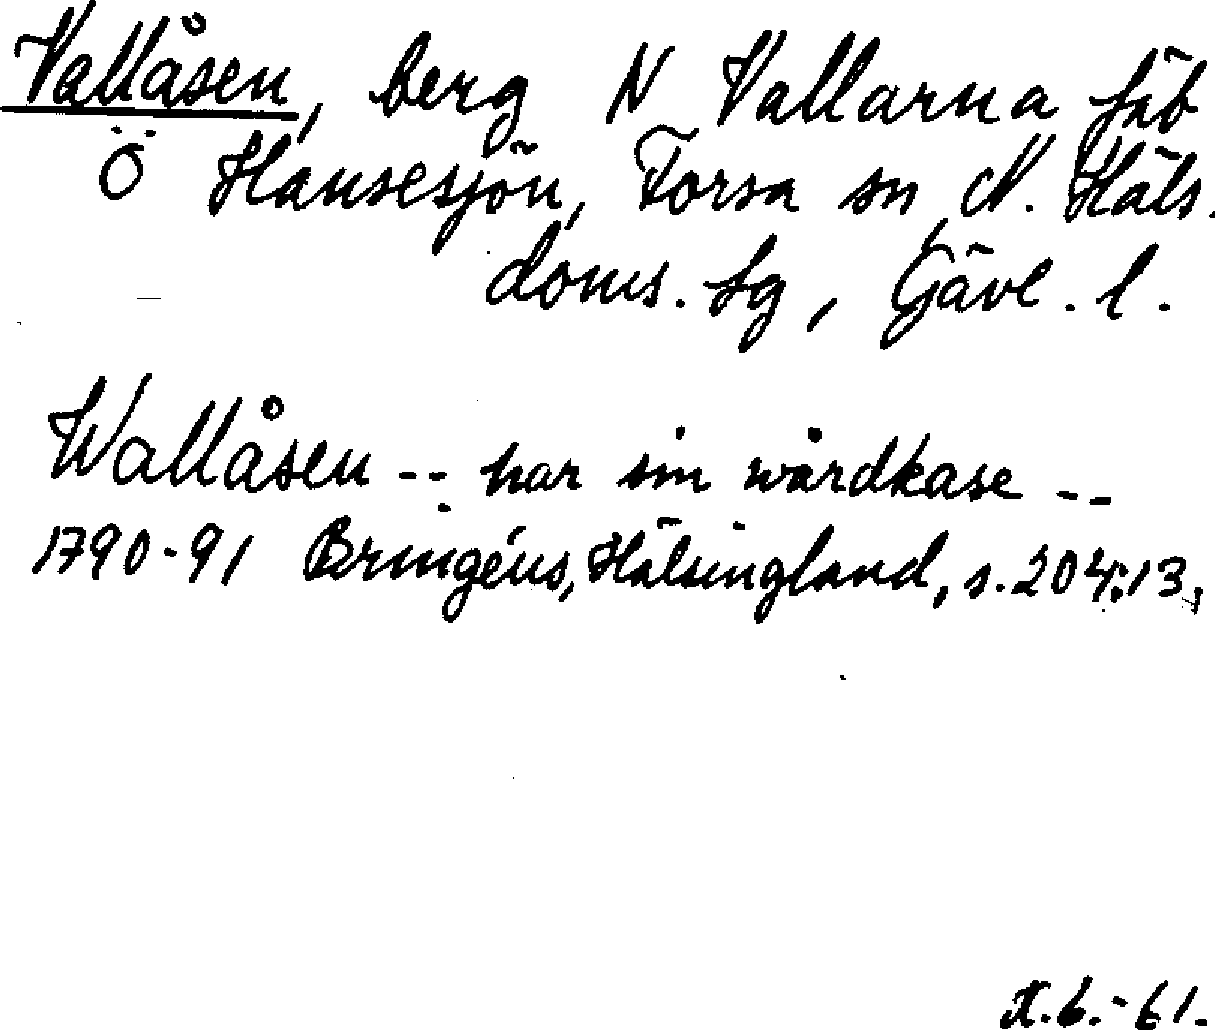 Vallåsen, berg N Vallarna fäb
Ö Hansesjön, Forsa sn, N. Häls.
doms. sg, Gävl. l.
Wallåsen -- har sin wårdkase --
1790-91 Bringéus, Hälsingland, s. 204:13.
X.6.-61.